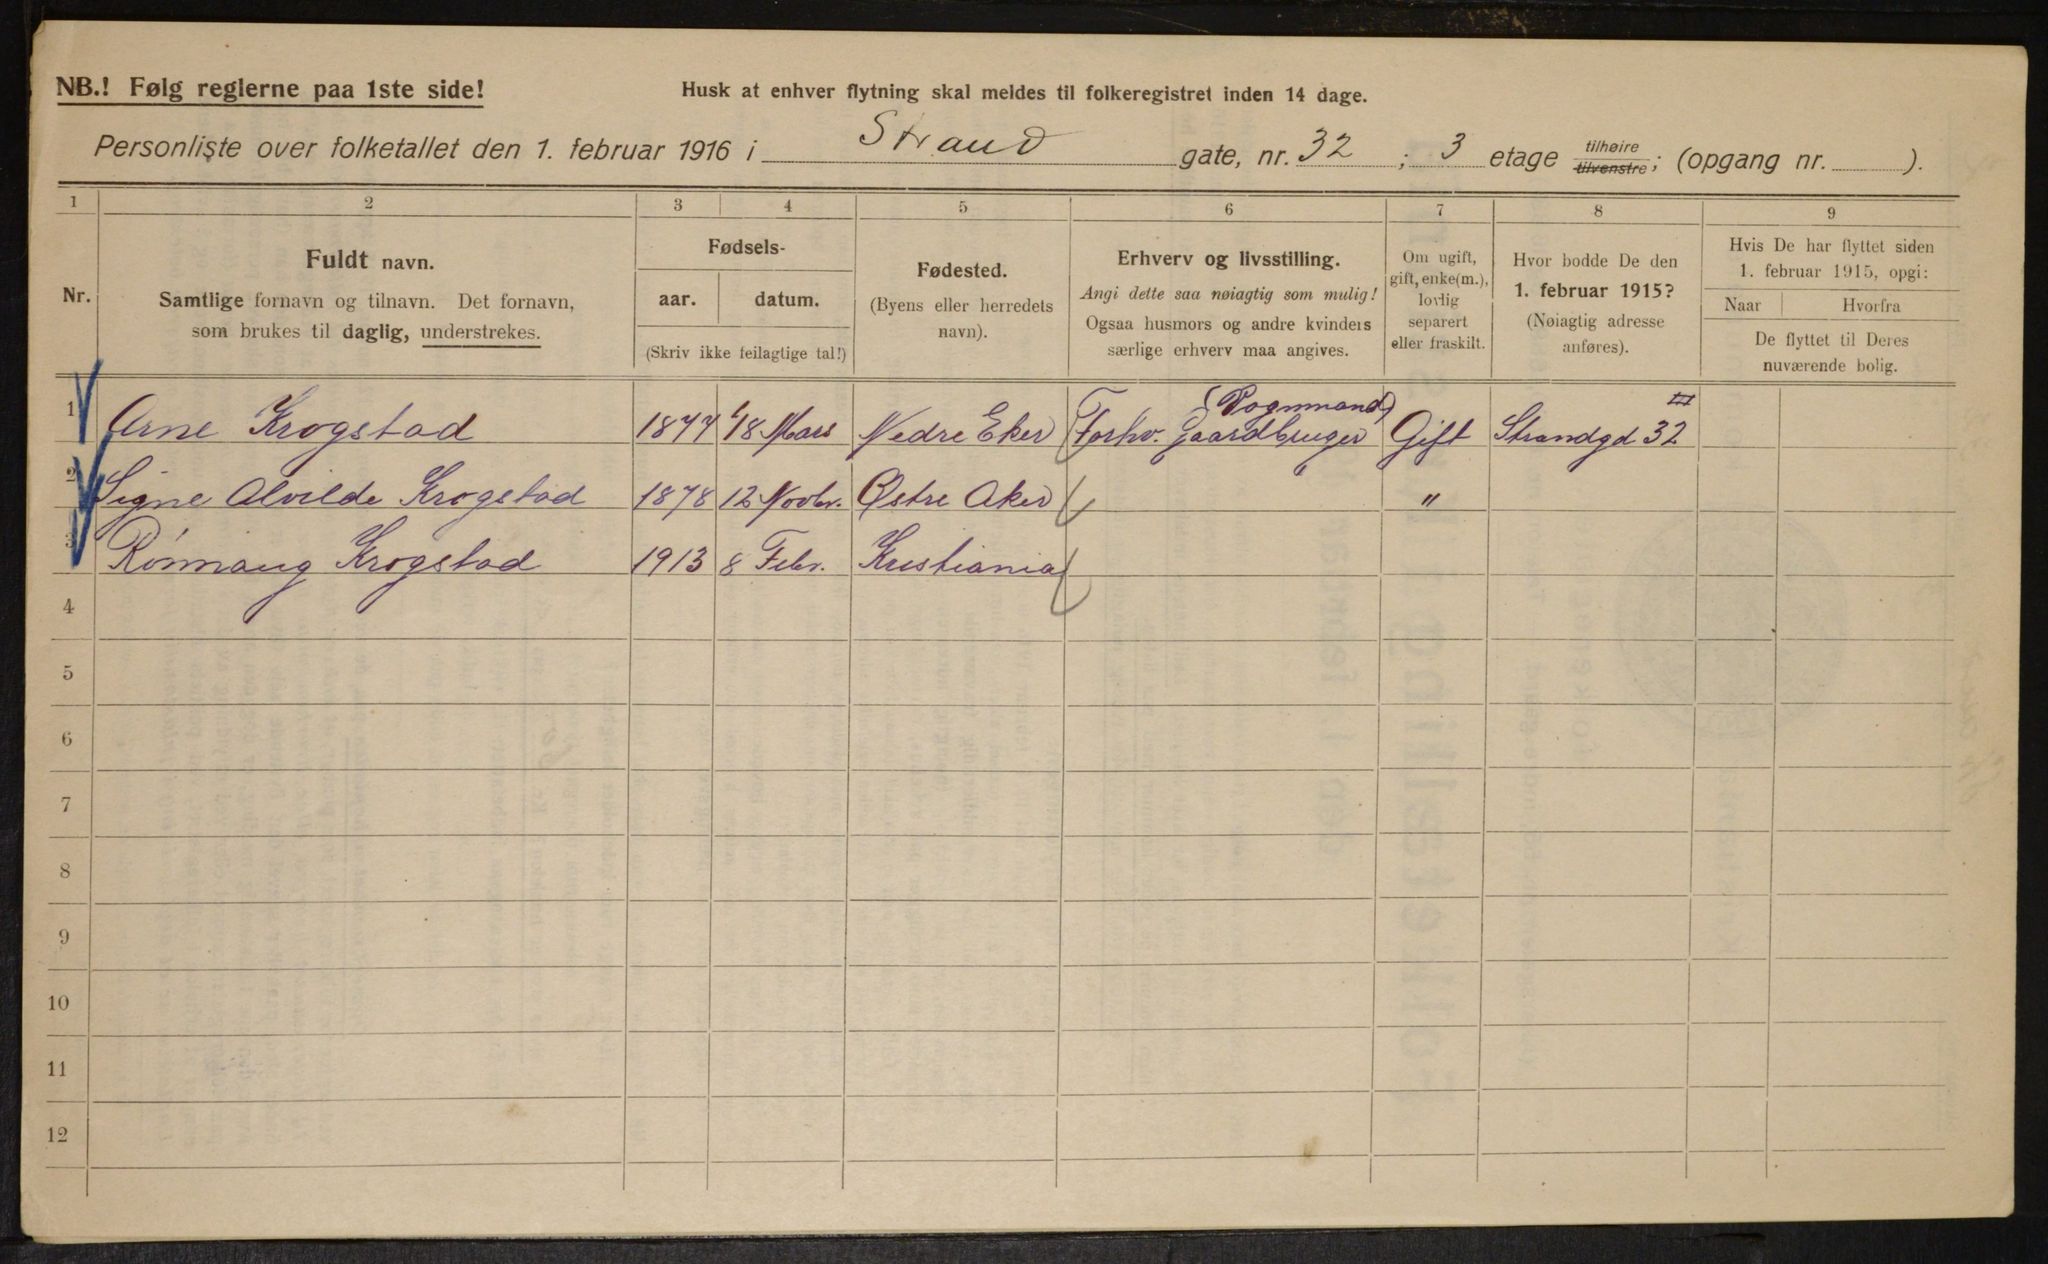 NB.! Følg reglerne paa 1ste side!
Husk at enhver flytning skal meldes til folkeregistret inden 14 dage.
Personliste over folketallet den 1. februar 1916 i Strand gate, nr. 32 ; 3 etage tilhøire tilvenstre; (opgang nr. ).
1 2 3 4 5 6 7 8 9
Nr.
Fuldt navn.
Samtlige fornavn og tilnavn. Det fornavn,
som brukes til daglig, understrekes.
Fødsels-
aar. datum.
(Skriv ikke feilagtige tal!)
Fødested.
(Byens eller herredets
navn).
Erhverv og livsstilling.
Angi dette saa nøiagtig som mulig!
Ogsaa husmors og andre kvinders
særlige erhverv maa angives.
Om ugift,
gift, enke(m.),
lovlig
separert
eller fraskilt.
Hvor bodde De den
1. februar 1915?
(Nøiagtig adresse
anføres).
Hvis De har flyttet siden
1. februar 1915, opgi:
Naar Hvorfra
De flyttet til Deres
nuværende bolig.
(Vognmand)
1 Arne Krogstad 1877 18 Mars Nedre Eker Forhv. Gaardbruger Gift Strandgd 32 III
2 Signe Alvilde Krogstad 1878 12 Novbr. Østre Aker "
3 Rønnaug Krogstad 1913 8 Febr. Kristiania
4
5
6
7
8
9
10
11
12